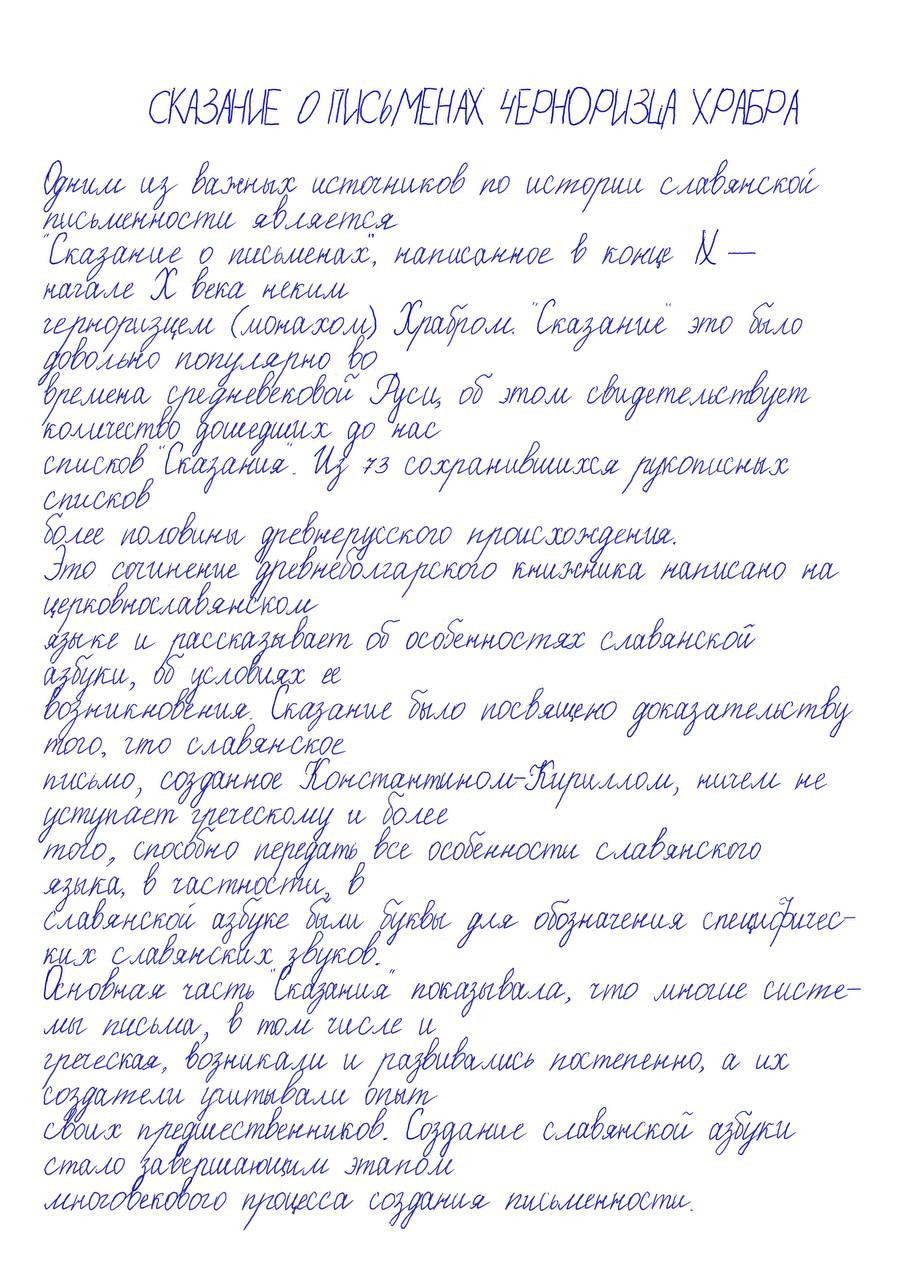 СКАЗАНИЕ О ПИСЬМЕНАХ ЧЕРНОРИЗЦА ХРАБРА
Одним из важных источников по истории славянской
письменности является
"Сказание о письменах", написанное в конце IX —
начале X века неким
черноризцем (монахом) Храбром. "Сказание" это было
довольно популярно во
времена средневековой Руси, об этом свидетельствует
количество дошедших до нас
списков "Сказания". Из 73 сохранившихся рукописных
списков
более половины древнерусского происхождения.
Это сочинение древнеболгарского книжника написано на
церковнославянском
языке и рассказывает об особенностях славянской
азбуки, об условиях ее
возникновения. Сказание было посвящено доказательству
того, что славянское
письмо, созданное Константином-Кириллом, ничем не
уступает греческому и более
того, способно передать все особенности славянского
языка, в частности, в
славянской азбуке были буквы для обозначения специфичес-
ких славянских звуков.
Основная часть "Сказания" показывала, что многие систе-
мы письма, в том числе и
греческая, возникали и развивались постепенно, а их
создатели учитывали опыт
своих предшественников. Создание славянской азбуки
стало завершающим этапом
многовекового процесса создания письменности.